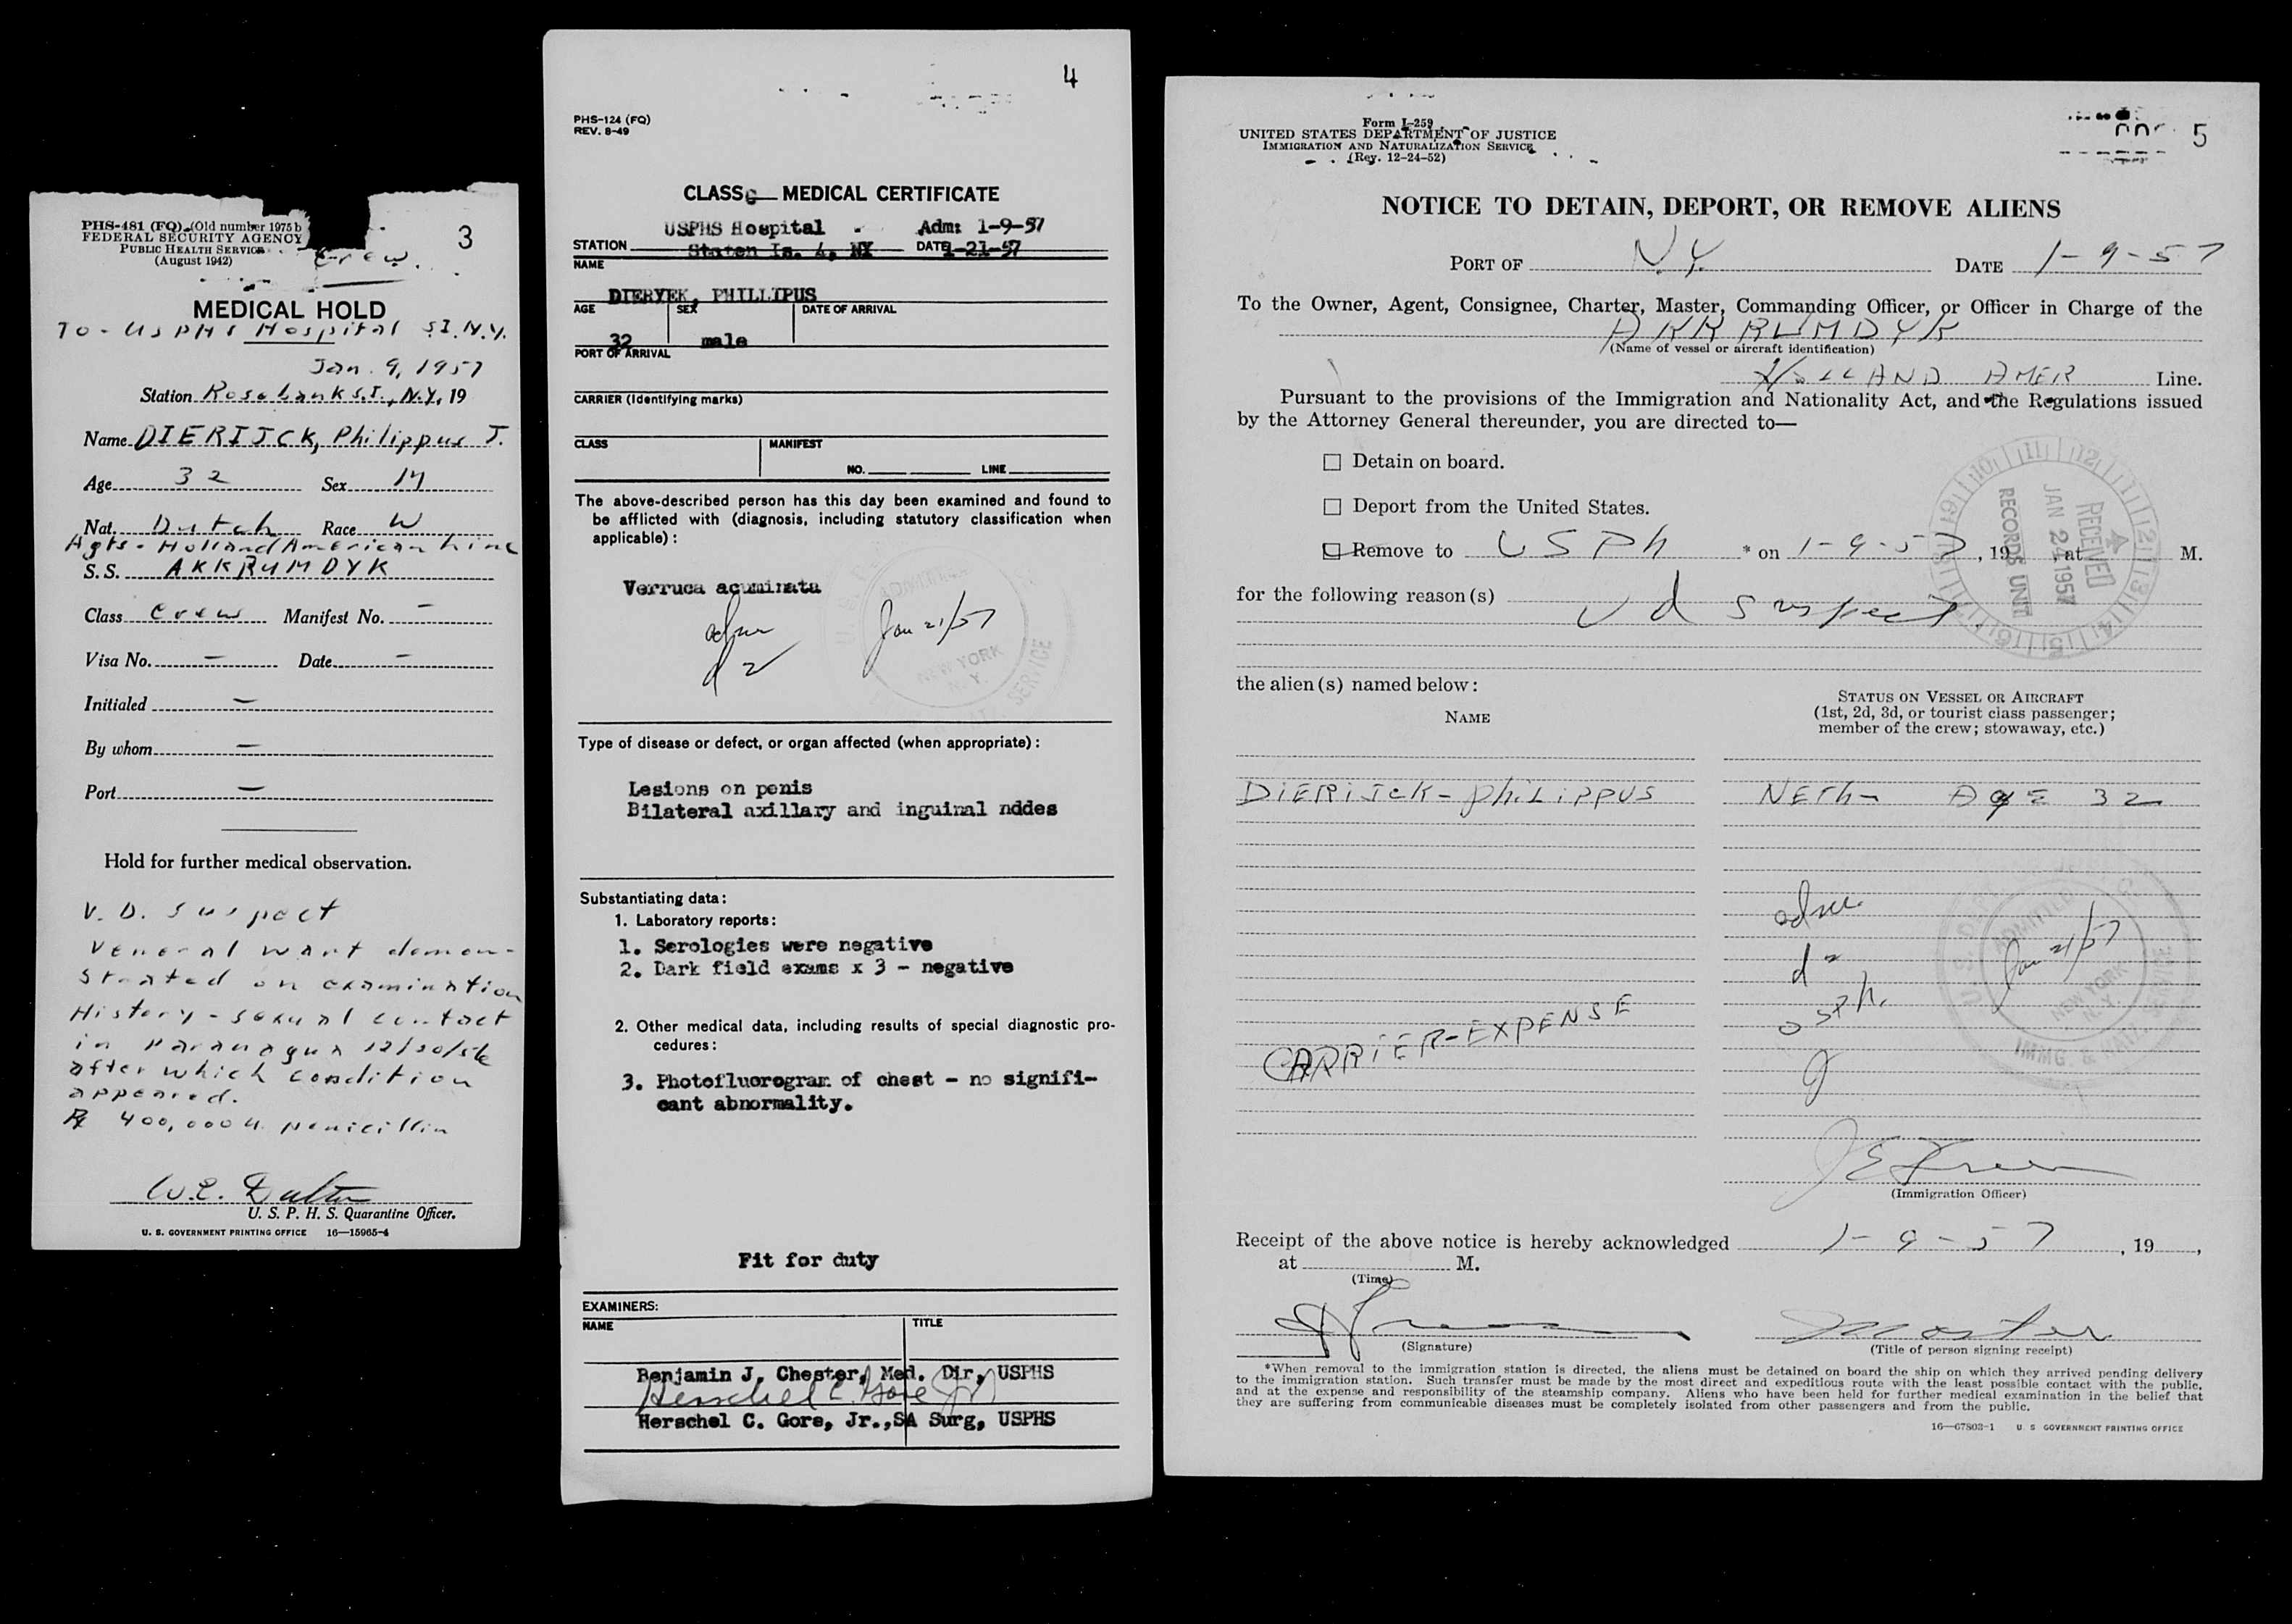 PHS-481 (FQ) (Old number 1975b
FEDERAL SECURITY AGENCY
PUBLIC HEALTH SERVICE
(August 1942)
Crew.
3
MEDICAL HOLD
To - USPHS Hospital S.I. N.Y.
Jan. 9, 1957
Station Rosebank S.I., N.Y., 19
Name DIERIJCK, Philippus J.
Age 32 Sex M
Nat. Dutch Race W
Agts - Holland American Line
S.S. AKKRUMDYK
Class Crew Manifest No. —
Visa No. — Date —
Initialed —
By whom —
Port —
Hold for further medical observation.
V. D. Suspect
Veneral wart demon-
strated on examination
History - sexual contact
in Paranagua 12/20/56
after which condition
appeared.
Rx 400,000 u. penicillin
W.E. Dalton
U. S. P. H. S. Quarantine Officer.
U. S. GOVERNMENT PRINTING OFFICE 16—15965-4
4
PHS-124 (FQ)
REV. 8-49
CLASS C MEDICAL CERTIFICATE
USPHS Hospital - Adm: 1-9-57
STATION Staten Is. 4, NY DATE 1-21-57
NAME
DIERYEK, PHILLIPUS
AGE SEX DATE OF ARRIVAL
32 male
PORT OF ARRIVAL
CARRIER (Identifying marks)
CLASS MANIFEST
NO. LINE
The above-described person has this day been examined and found to
be afflicted with (diagnosis, including statutory classification when
applicable):
Verruca acuminata
adm
d2
Jan 21/57
ADMITTED
NEW YORK
N. Y.
SERVICE
Type of disease or defect, or organ affected (when appropriate):
Lesions on penis
Bilateral axillary and inguinal nddes
Substantiating data:
1. Laboratory reports:
1. Serologies were negative
2. Dark field exams x 3 - negative
2. Other medical data, including results of special diagnostic pro-
cedures:
3. Photofluorogram of chest - no signifi-
cant abnormality.
Fit for duty
EXAMINERS:
NAME TITLE
Benjamin J. Chester, Med. Dir, USPHS
Herschel C. Gore Jr
Herschel C. Gore, Jr.,SA Surg, USPHS
5
Form I-259
UNITED STATES DEPARTMENT OF JUSTICE
IMMIGRATION AND NATURALIZATION SERVICE
(Rev. 12-24-52)
NOTICE TO DETAIN, DEPORT, OR REMOVE ALIENS
PORT OF N.Y. DATE 1-9-57
To the Owner, Agent, Consignee, Charter, Master, Commanding Officer, or Officer in Charge of the
AKKRUMDYK
(Name of vessel or aircraft identification)
HOLLAND AMER Line.
Pursuant to the provisions of the Immigration and Nationality Act, and the Regulations issued
by the Attorney General thereunder, you are directed to—
☐ Detain on board.
☐ Deport from the United States.
☐ Remove to USPH * on 1-9-57, 19 at M.
RECEIVED
JAN 24 1957
RECORDS UNIT
for the following reason(s) Vd suspect.
the alien(s) named below:
NAME
STATUS ON VESSEL OR AIRCRAFT
(1st, 2d, 3d, or tourist class passenger;
member of the crew; stowaway, etc.)
DIERIJCK - PHILIPPUS NETH- AGE 32
adm
d2
Jan 21/57
ADMITTED
NEW YORK
N.Y.
IMMG. & NATZ. SERVICE
CARRIER-EXPENSE
(Immigration Officer)
Receipt of the above notice is hereby acknowledged 1-9-57, 19 ,
at M.
(Time)
Master
(Signature)
(Title of person signing receipt)
*When removal to the immigration station is directed, the aliens must be detained on board the ship on which they arrived pending delivery
to the immigration station. Such transfer must be made by the most direct and expeditious route with the least possible contact with the public,
and at the expense and responsibility of the steamship company. Aliens who have been held for further medical examination in the belief that
they are suffering from communicable diseases must be completely isolated from other passengers and from the public.
16—67803-1 U S GOVERNMENT PRINTING OFFICE